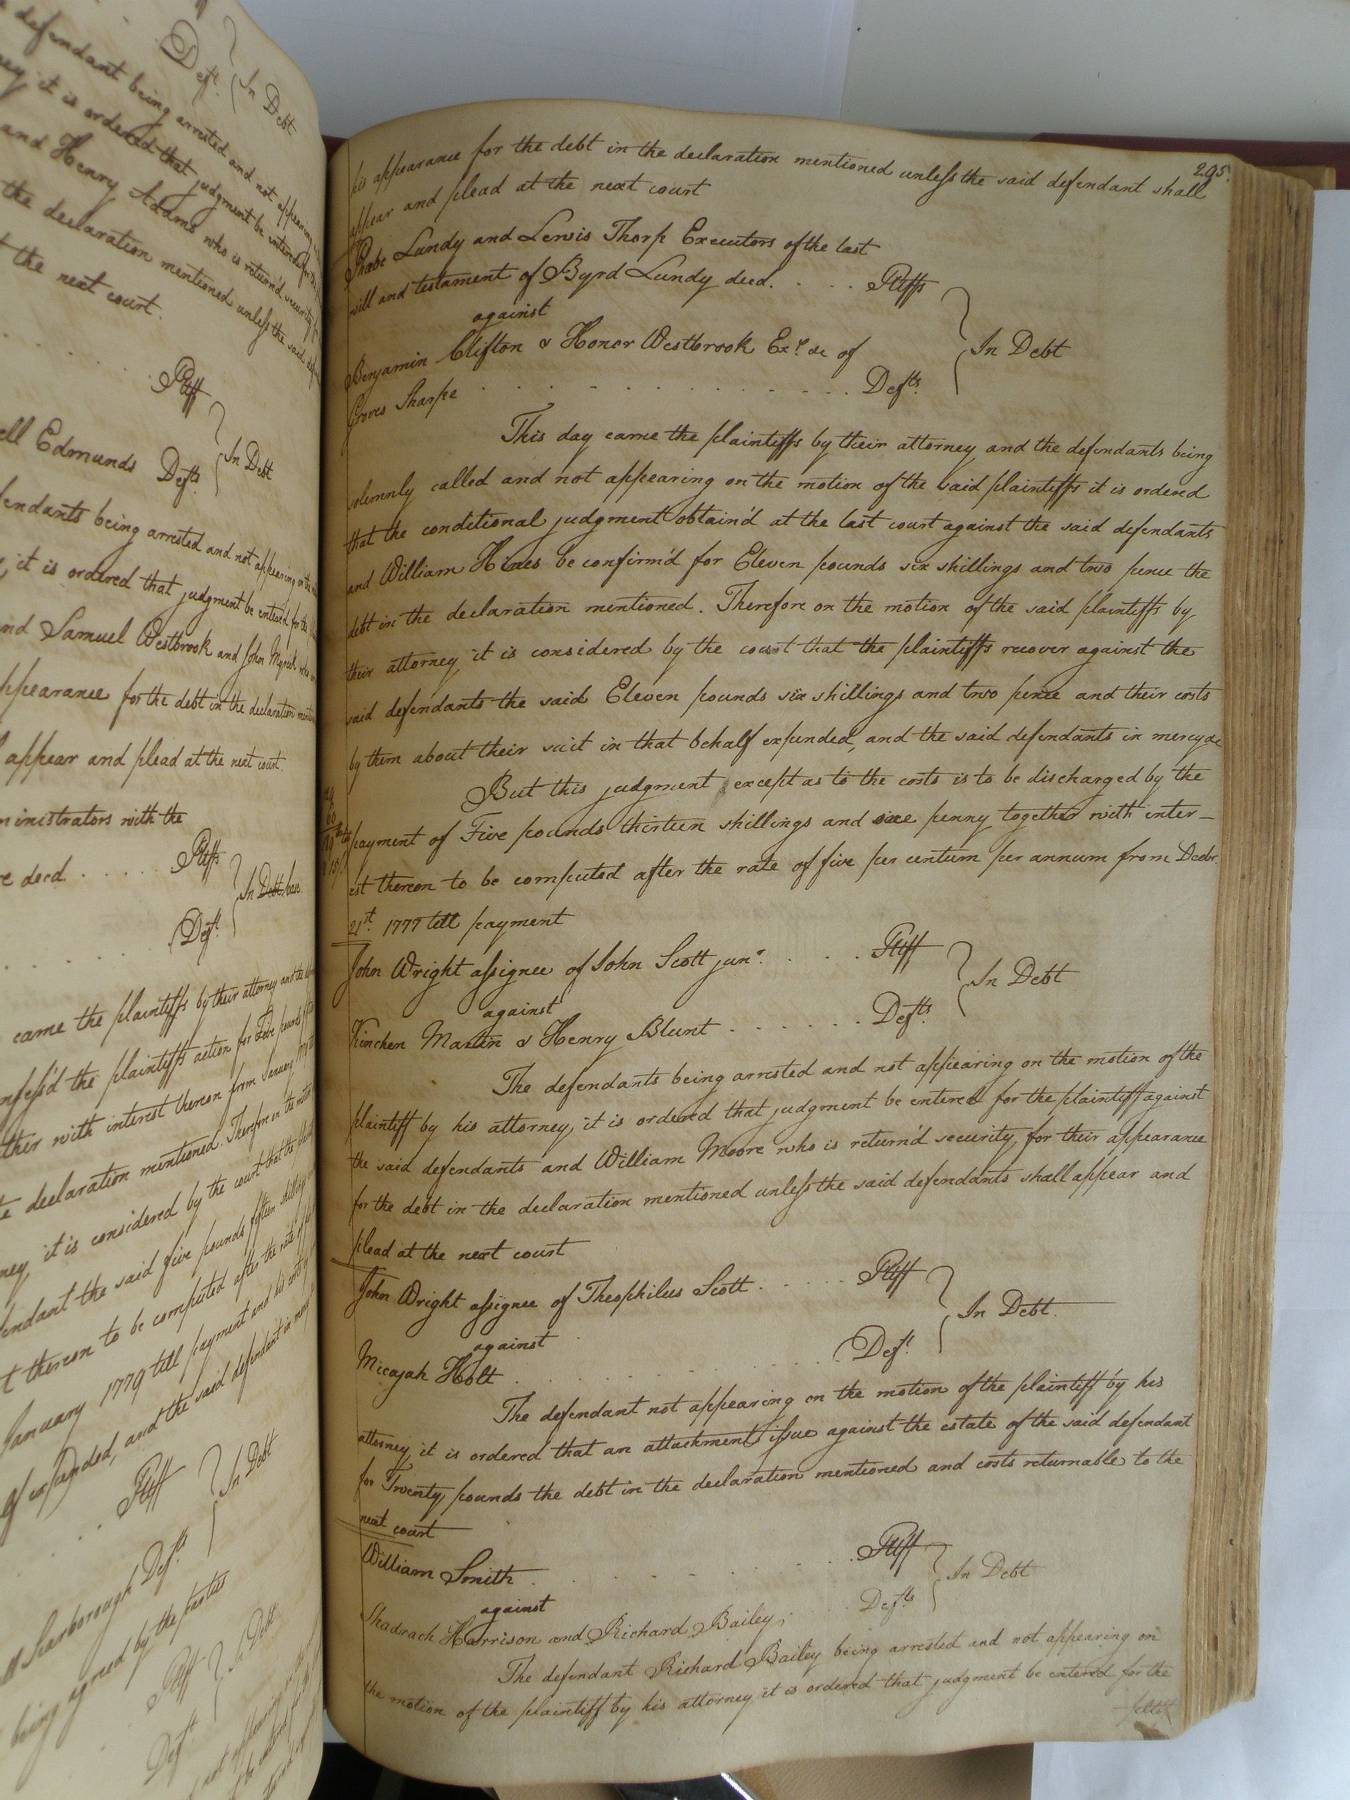 Deft. In Debt
defendant being arrested and not appearing
it is ordered that judgment be entered for
and Henry Adams who is return'd security
the declaration mentioned unless the said
the next court.
Pltff
In Debt
Edmunds Defts.
defendants being arrested and not appearing on the
it is ordered that judgment be entered for the
and Samuel Westbrook and John Myrick
appearance for the debt in the declaration
appear and plead at the next court
administrators with the
decd. Pltffs
In Debt
Deft.
came the plaintiffs by their attorney and the
confess'd the plaintiffs action for five pounds
together with interest thereon from January
declaration mentioned. Therefore on the
it is considered by the court that the
defendant the said five pounds fifteen shillings
thereon to be computed after the rate of
January 1779 till payment and his costs
expended, and the said defendant in
Pltff
In Debt
Scarborough Deft
being agreed by the parties
Pltff
In Debt
Deft.
not appearing
295.
his appearance for the debt in the declaration mentioned unless the said defendant shall
appear and plead at the next court
Phebe Lundy and Lewis Thorp Executors of the last
will and testament of Byrd Lundy decd. . . . Pltffs
against
In Debt
Benjamin Clifton & Honor Westbrook Exr. &c of
Groves Sharpe . . . . . . . . . . Defts.
This day came the plaintiffs by their attorney and the defendants being
solemnly called and not appearing on the motion of the said plaintiffs it is ordered
that the conditional judgment obtain'd at the last court against the said defendants
and William Hines be confirm'd for Eleven pounds six shillings and two pence the
debt in the declaration mentioned. Therefore on the motion of the said plaintiffs by
their attorney it is considered by the court that the plaintiffs recover against the
said defendants the said Eleven pounds six shillings and two pence and their costs
by them about their suit in that behalf expended, and the said defendants in mercy &c
But this judgment except as to the costs is to be discharged by the
payment of Five pounds thirteen shillings and one penny together with inter-
est thereon to be computed after the rate of five per centum per annum from Decbr.
21st. 1777 till payment
John Wright assignee of John Scott junr. . . . Pltff
against
In Debt
Kinchen Martin & Henry Blunt . . . . . . Defts.
The defendants being arrested and not appearing on the motion of the
plaintiff by his attorney, it is ordered that judgment be entered for the plaintiff against
the said defendants and William Moore who is return'd security for their appearance
for the debt in the declaration mentioned unless the said defendants shall appear and
plead at the next court
John Wright assignee of Theophilus Scott . . . . . Pltff
against
In Debt
Micajah Holt . . . . . . . . . Deft.
The defendant not appearing on the motion of the plaintiff by his
attorney, it is ordered that an attachment issue against the estate of the said defendant
for Twenty pounds the debt in the declaration mentioned and costs returnable to the
next court
William Smith . . . . . . . Pltff
against
In Debt
Shadrach Harrison and Richard Bailey . . Defts
The defendant Richard Bailey being arrested and not appearing on
the motion of the plaintiff by his attorney it is ordered that judgment be entered for the